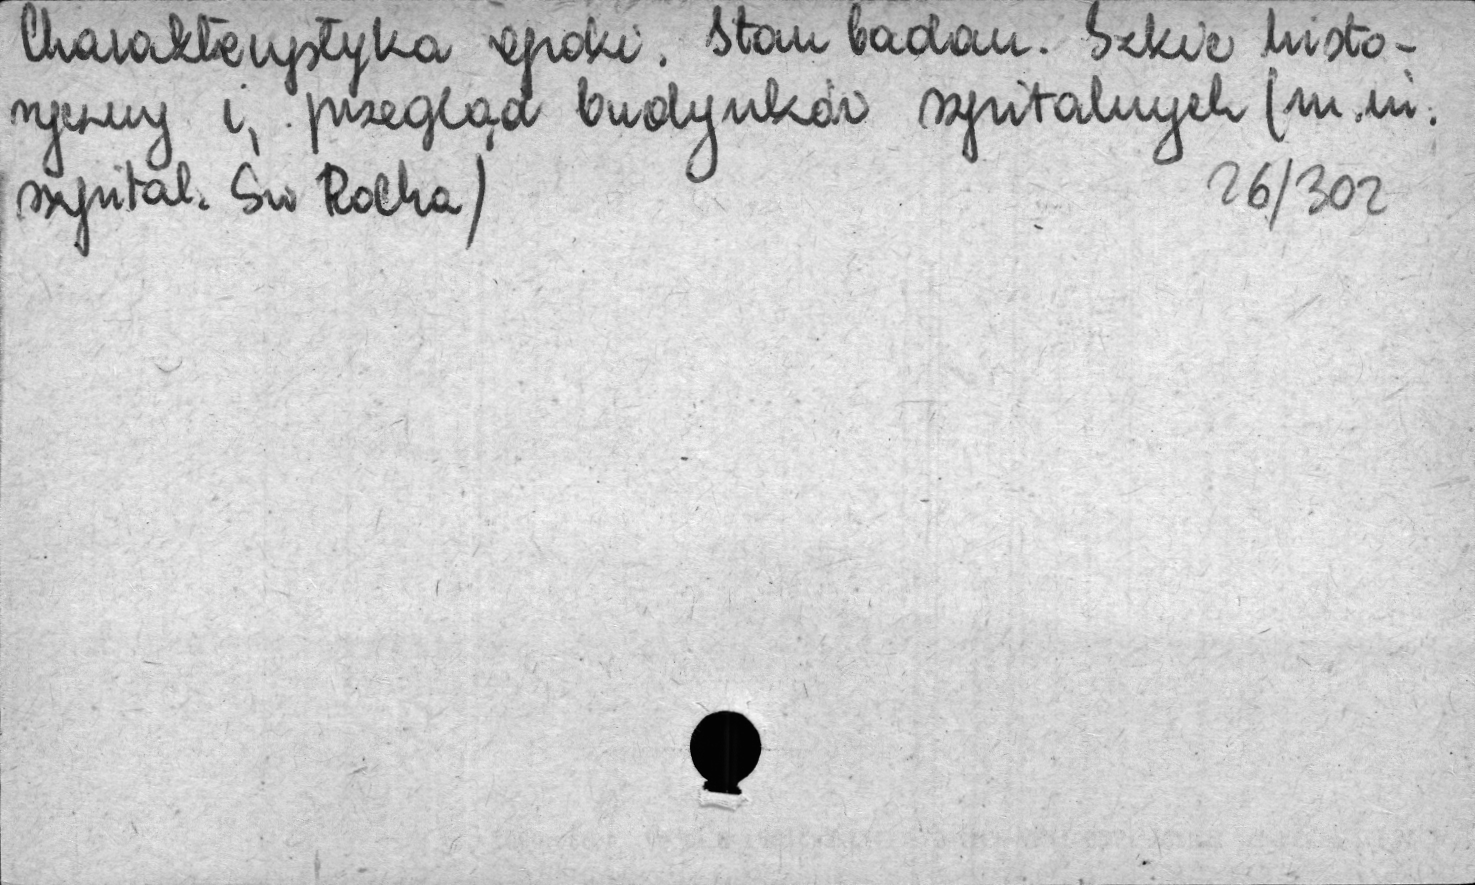 Charakterystyka epoki. Stan badań. Szkic histo-
ryczny i przegląd budynków szpitalnych (m.in.
szpital. Św Rocha) 26/302